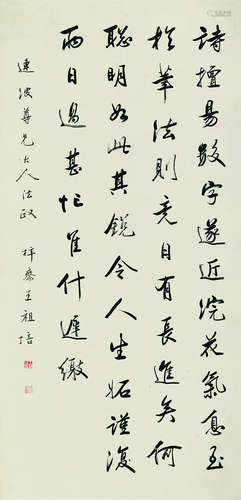 詩擅易數字遂近浣花氣息至
於筆法則竟日有長進矣何
聰明如此其銳令人生妬謹復
兩日過甚忙佳什遲繳
連波尊兄大人法政　梓叅王祖培